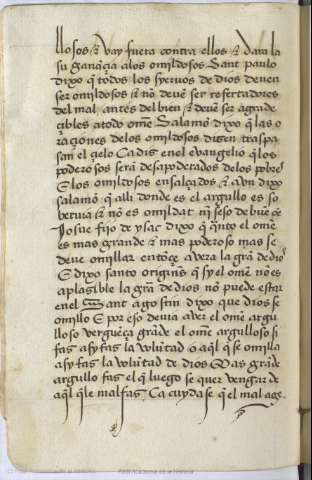 llosos ⁊ vay fuera contra ellos ⁊ dara la
su ganaçia a los omildosos Sant paulo
dixo q̃ todos los syervos de dios deven
ser omildosos ⁊ nõ devẽ ser refertadores
del mal antes del bien ⁊ devẽ ser agrade
çibles a todo ome Salamõ dixo q̃ las o
raçiones de los omildosos diçen traspa
san el çielo Ca dis en el evangelio q̃ los
poderosos serã desapoderados ⁊ los pobres
⁊ los omildosos ensalçados ⁊ aun dixo
salamõ q̃ alli donde es el argullo es so
bervia ⁊ nõ es omildat nj̃ seso de buẽ
Josue fijo de ysac dixo q̃ quãto el ome
es mas grande ⁊ mas poderoso mas se
deve omillar entõçe avera la grã de dios
⁊ dixo santo origines q̃ sy el ome nõ es
aplasible la grã de dios nõ puede estar
en el sant agostin dixo que dios se
omillo ⁊ por eso devia aver el ome argu
lloso verguẽça grãde el ome argulloso si
fas asy fas la volũtad ⁊ aql̃ q̃ se omilla
asy fas la volũtad de dios Mas grãde
argullo fas el q̃ luego se quer vengar de
aql̃ q̃ le mal fas Ca cuyda se q̃ el mal age
Real Academia de la Historia